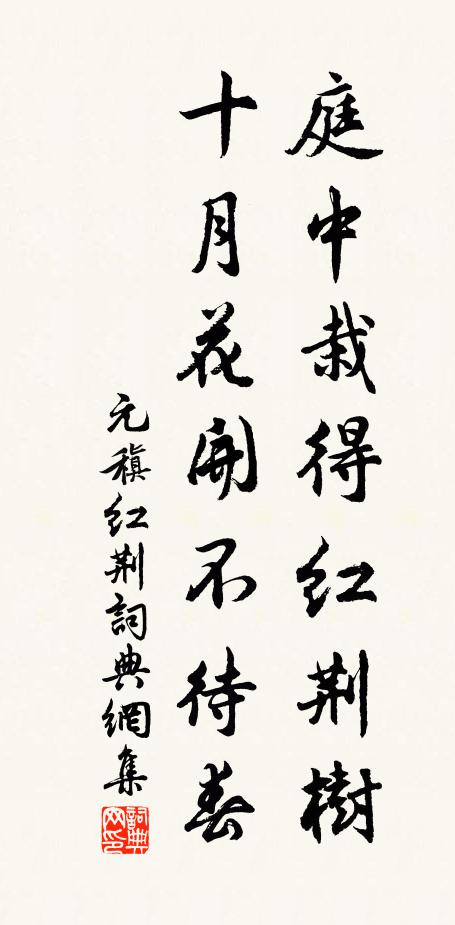 庭中栽得红荆樹
十月花開不待春
元稹红荆詞典網集
詞典网印